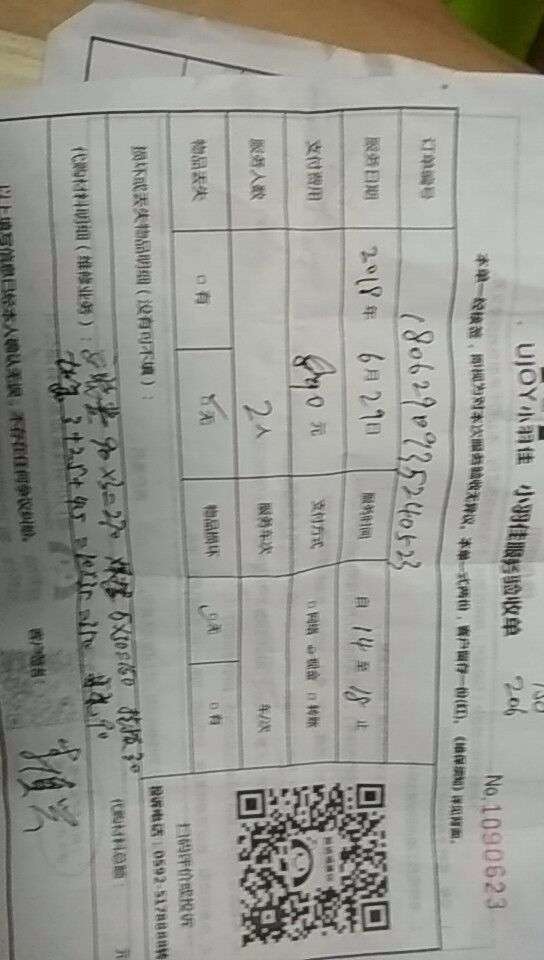 UJOY小羽佳 小羽佳服务验收单
206
No.1090623
本单一经接签,即视为对本次服务验收无异议。本单一式两份,客户留存一份(红)。《维保须知》详见背面。
订单编号 18062909325240523
服务日期 2018年 6月29日 服务时间 自 14 至 18 止
支付费用 890元 支付方式 □网络 □现金 □转账
服务人数 2人 服务车次 车/次
物品丢失 □有 □无 物品损坏 □无 □有
损坏或丢失物品明细(没有可不填):
扫码评价或投诉
投诉电话:0592-5178888转
代购材料明细(维修业务):
代购材料总额: 元
以上填写信息已经本人确认无误,不存在任何争议纠纷。 客户签名: